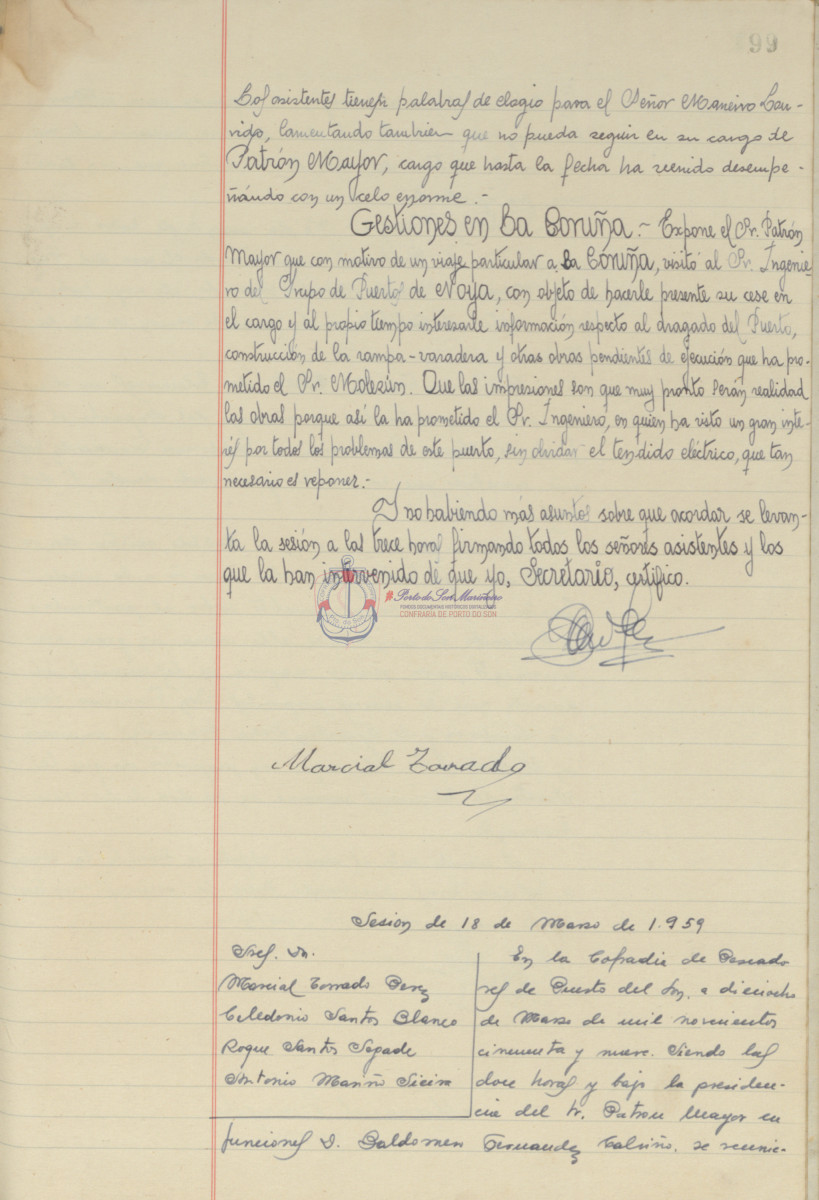 99
Los asistentes tienen palabras de elogio para el Señor Maneiro Cau-
vido, lamentando tambien que no pueda seguir en su cargo de
Patrón Mayor, cargo que hasta la fecha ha venido desempe-
ñando con un celo enorme.-
Gestiones en La Coruña.- Expone el Sr. Patrón
Mayor que con motivo de un viaje particular a La Coruña, visitó al Sr. Ingenie-
ro del Grupo de Puertos de Noya, con objeto de hacerle presente su cese en
el cargo y al propio tiempo interesarle información respecto al dragado del Puerto,
construcción de la rampa-varadera y otras obras pendientes de ejecución que ha pro-
metido el Sr. Molezún. Que las impresiones son que muy pronto serán realidad
las obras porque así la ha prometido el Sr. Ingeniero, en quien ha visto un gran inte-
rés por todos los problemas de este puerto, sin olvidar el tendido eléctrico, que tan
necesario es reponer.-
Y no habiendo más asuntos sobre que acordar se levan-
ta la sesión a las trece horas firmando todos los señores asistentes y los
que la han intervenido de que yo, Secretario, certifico.
Porto do Son Mariñeiro
FONDOS DOCUMENTAIS HISTÓRICOS DIXITALIZADOS
CONFRARÍA DE PORTO DO SON
Marcial Torrado
Sesion de 18 de Marzo de 1.959
Sres. Dn.
Marcial Torrado Perez
Celedonio Santos Blanco
Roque Santos Segade
Antonio Mariño Sieira
En la Cofradia de Pescado
res de Puerto del Son, a dieciocho
de Marzo de mil novecientos
cincuenta y nueve. Siendo las
doce horas y bajo la presiden-
cia del Sr. Patron Mayor en
funciones D. Baldomero Fernandez Calviño, se reunie-